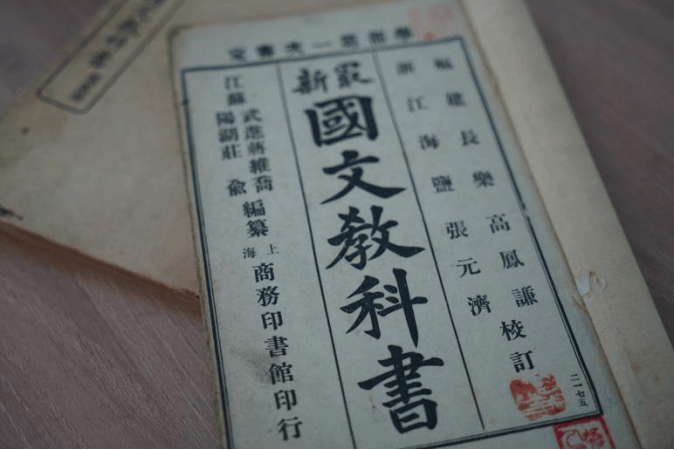 學部第一次審定
福建長樂高鳳謙
浙江海鹽張元濟
校訂
最新
國文教科書
江蘇
武進蔣維喬
陽湖莊俞
編纂
上海
商務印書館印行
二一七五